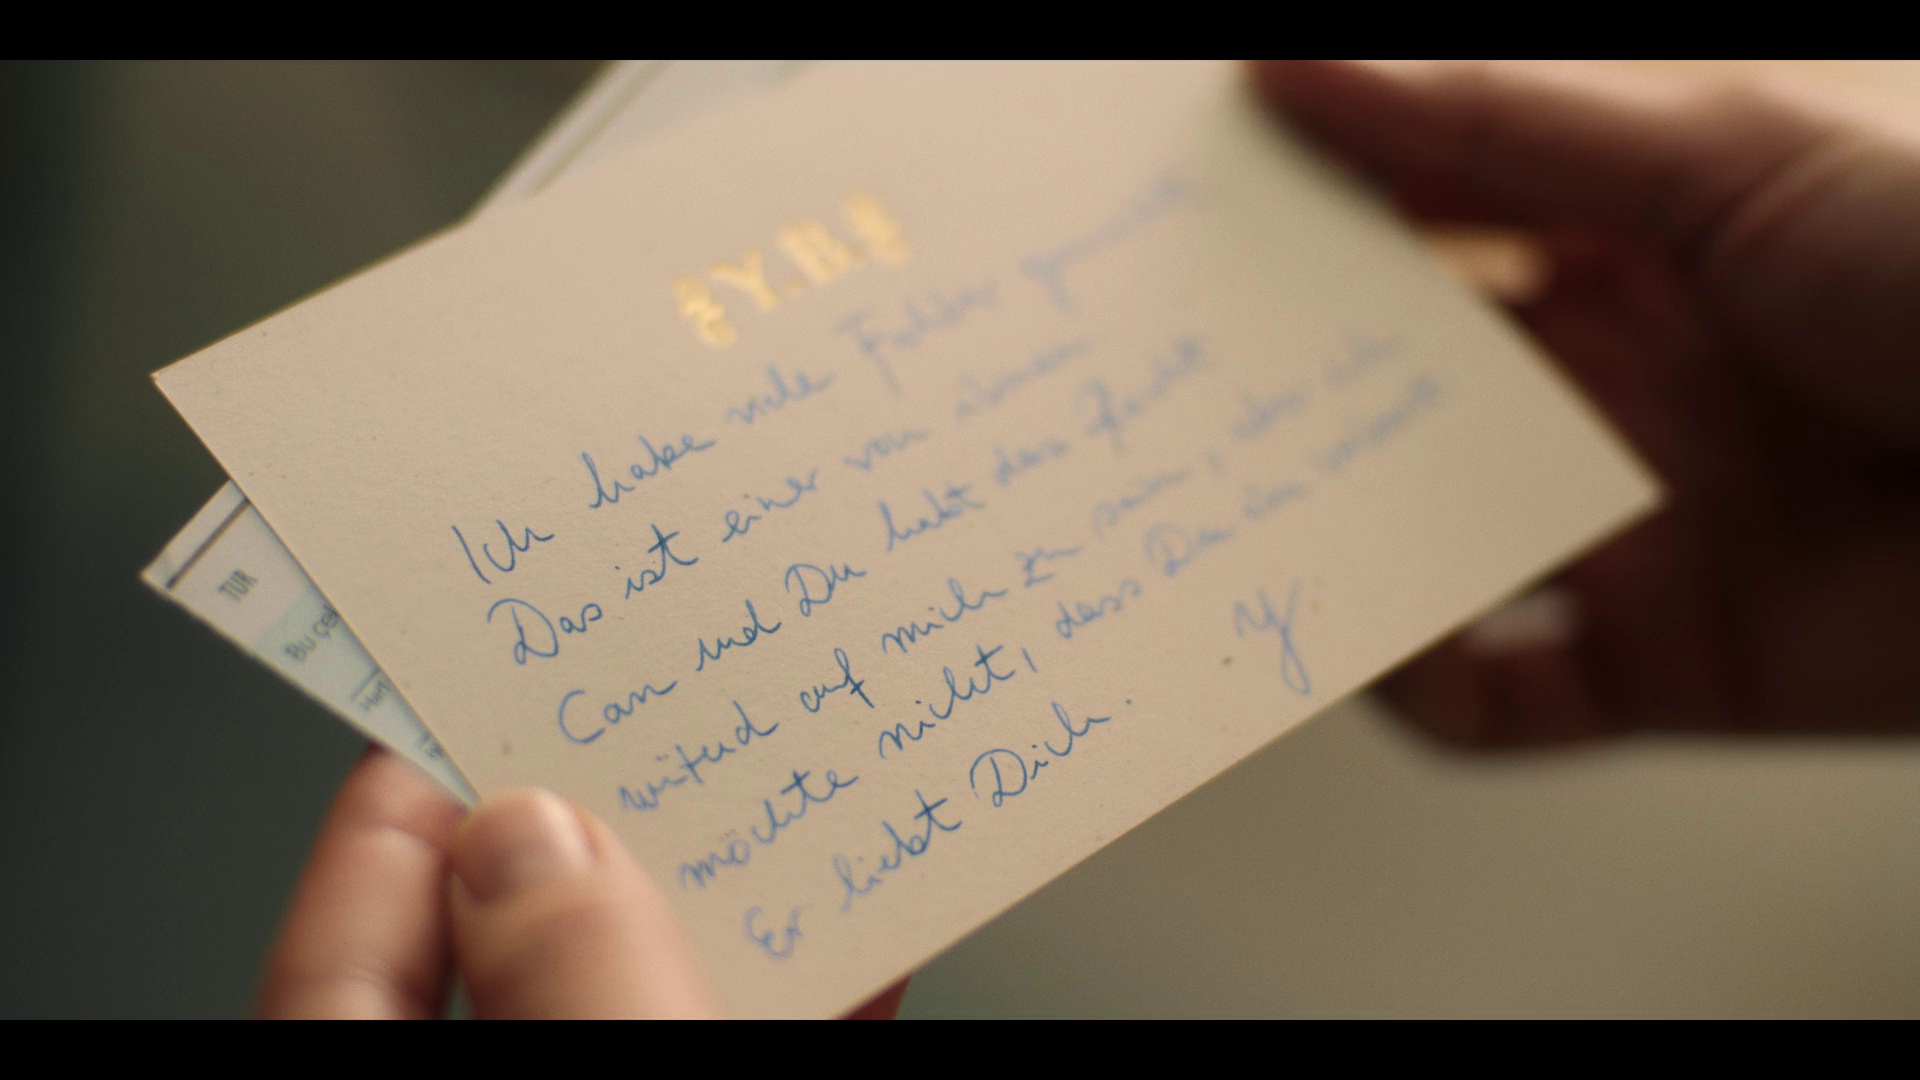 Y.B.
Ich habe viele Fehler gemacht
Das ist einer von ihnen
Can und Du habt das Recht
wütend auf mich zu sein, aber ich
möchte nicht, dass Du ihn
Er liebt Dich.
Y.
TUR
Bu çek